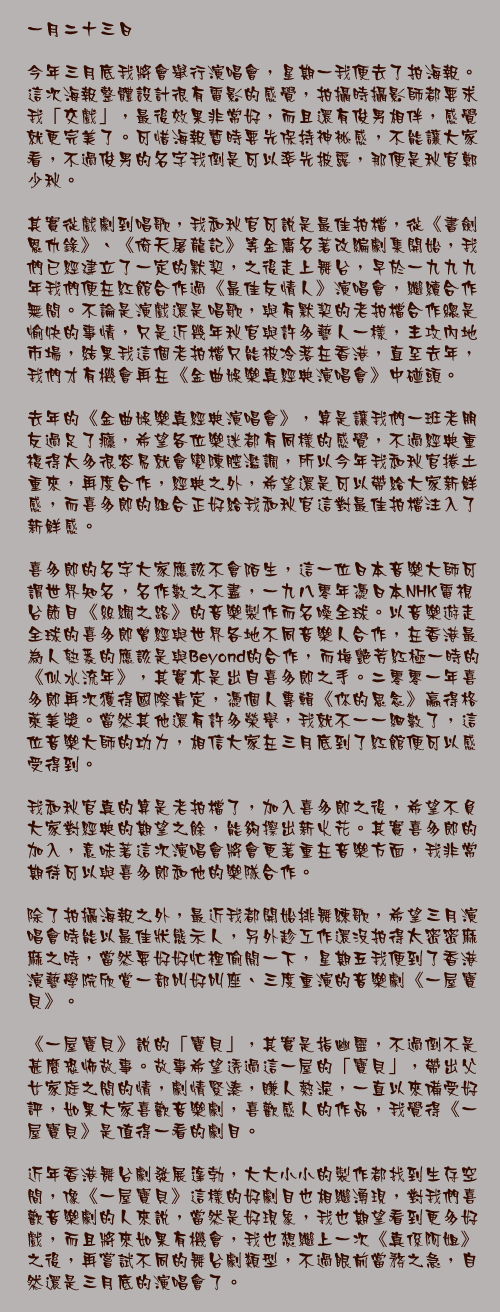 一月二十三日
今年三月底我將會舉行演唱會，星期一我便去了拍海報。
這次海報整體設計很有電影的感覺，拍攝時攝影師都要求
我「交戲」，最後效果非常好，而且還有俊男相伴，感覺
就更完美了。可惜海報暫時要先保持神秘感，不能讓大家
看，不過俊男的名字我倒是可以率先披露，那便是秋官鄭
少秋。
其實從戲劇到唱歌，我和秋官可說是最佳拍檔，從《書劍
恩仇錄》、《倚天屠龍記》等金庸名著改編劇集開始，我
們已經建立了一定的默契，之後走上舞台，早於一九九九
年我們便在紅館合作過《最佳友情人》演唱會，繼續合作
無間。不論是演戲還是唱歌，與有默契的老拍檔合作總是
愉快的事情，只是近幾年秋官與許多藝人一樣，主攻內地
市場，結果我這個老拍檔只能被冷落在香港，直至去年，
我們才有機會再在《金曲娛樂真經典演唱會》中碰頭。
去年的《金曲娛樂真經典演唱會》，算是讓我們一班老朋
友過足了癮，希望各位樂迷都有同樣的感覺，不過經典重
複得太多很容易就會變陳腔濫調，所以今年我和秋官捲土
重來，再度合作，經典之外，希望還是可以帶給大家新鮮
感，而喜多郎的組合正好給我和秋官這對最佳拍檔注入了
新鮮感。
喜多郎的名字大家應該不會陌生，這一位日本音樂大師可
謂世界知名，名作數之不盡，一九八零年憑日本NHK電視
台節目《絲綢之路》的音樂製作而名噪全球。以音樂遊走
全球的喜多郎曾經與世界各地不同音樂人合作，在香港最
為人熟悉的應該是與Beyond的合作，而梅艷芳紅極一時的
《似水流年》，其實亦是出自喜多郎之手。二零零一年喜
多郎再次獲得國際肯定，憑個人專輯《你的思念》贏得格
萊美獎。當然其他還有許多榮譽，我就不一一細數了，這
位音樂大師的功力，相信大家在三月底到了紅館便可以感
受得到。
我和秋官真的算是老拍檔了，加入喜多郎之後，希望不負
大家對經典的期望之餘，能夠擦出新火花。其實喜多郎的
加入，意味著這次演唱會將會更著重在音樂方面，我非常
期待可以與喜多郎和他的樂隊合作。
除了拍攝海報之外，最近我都開始排舞練歌，希望三月演
唱會時能以最佳狀態示人，另外趁工作還沒拍得太密密麻
麻之時，當然要好好忙裡偷閒一下，星期五我便到了香港
演藝學院欣賞一部叫好叫座、三度重演的音樂劇《一屋寶
貝》。
《一屋寶貝》說的「寶貝」，其實是指幽靈，不過倒不是
甚麼恐怖故事。故事希望透過這一屋的「寶貝」，帶出父
女家庭之間的情，劇情緊湊，賺人熱淚，一直以來備受好
評，如果大家喜歡音樂劇，喜歡感人的作品，我覺得《一
屋寶貝》是值得一看的劇目。
近年香港舞台劇發展蓬勃，大大小小的製作都找到生存空
間，像《一屋寶貝》這樣的好劇目也相繼湧現，對我們喜
歡音樂劇的人來說，當然是好現象，我也期望看到更多好
戲，而且將來如果有機會，我也想繼上一次《真假阿姐》
之後，再嘗試不同的舞台劇類型，不過眼前當務之急，自
然還是三月底的演唱會了。